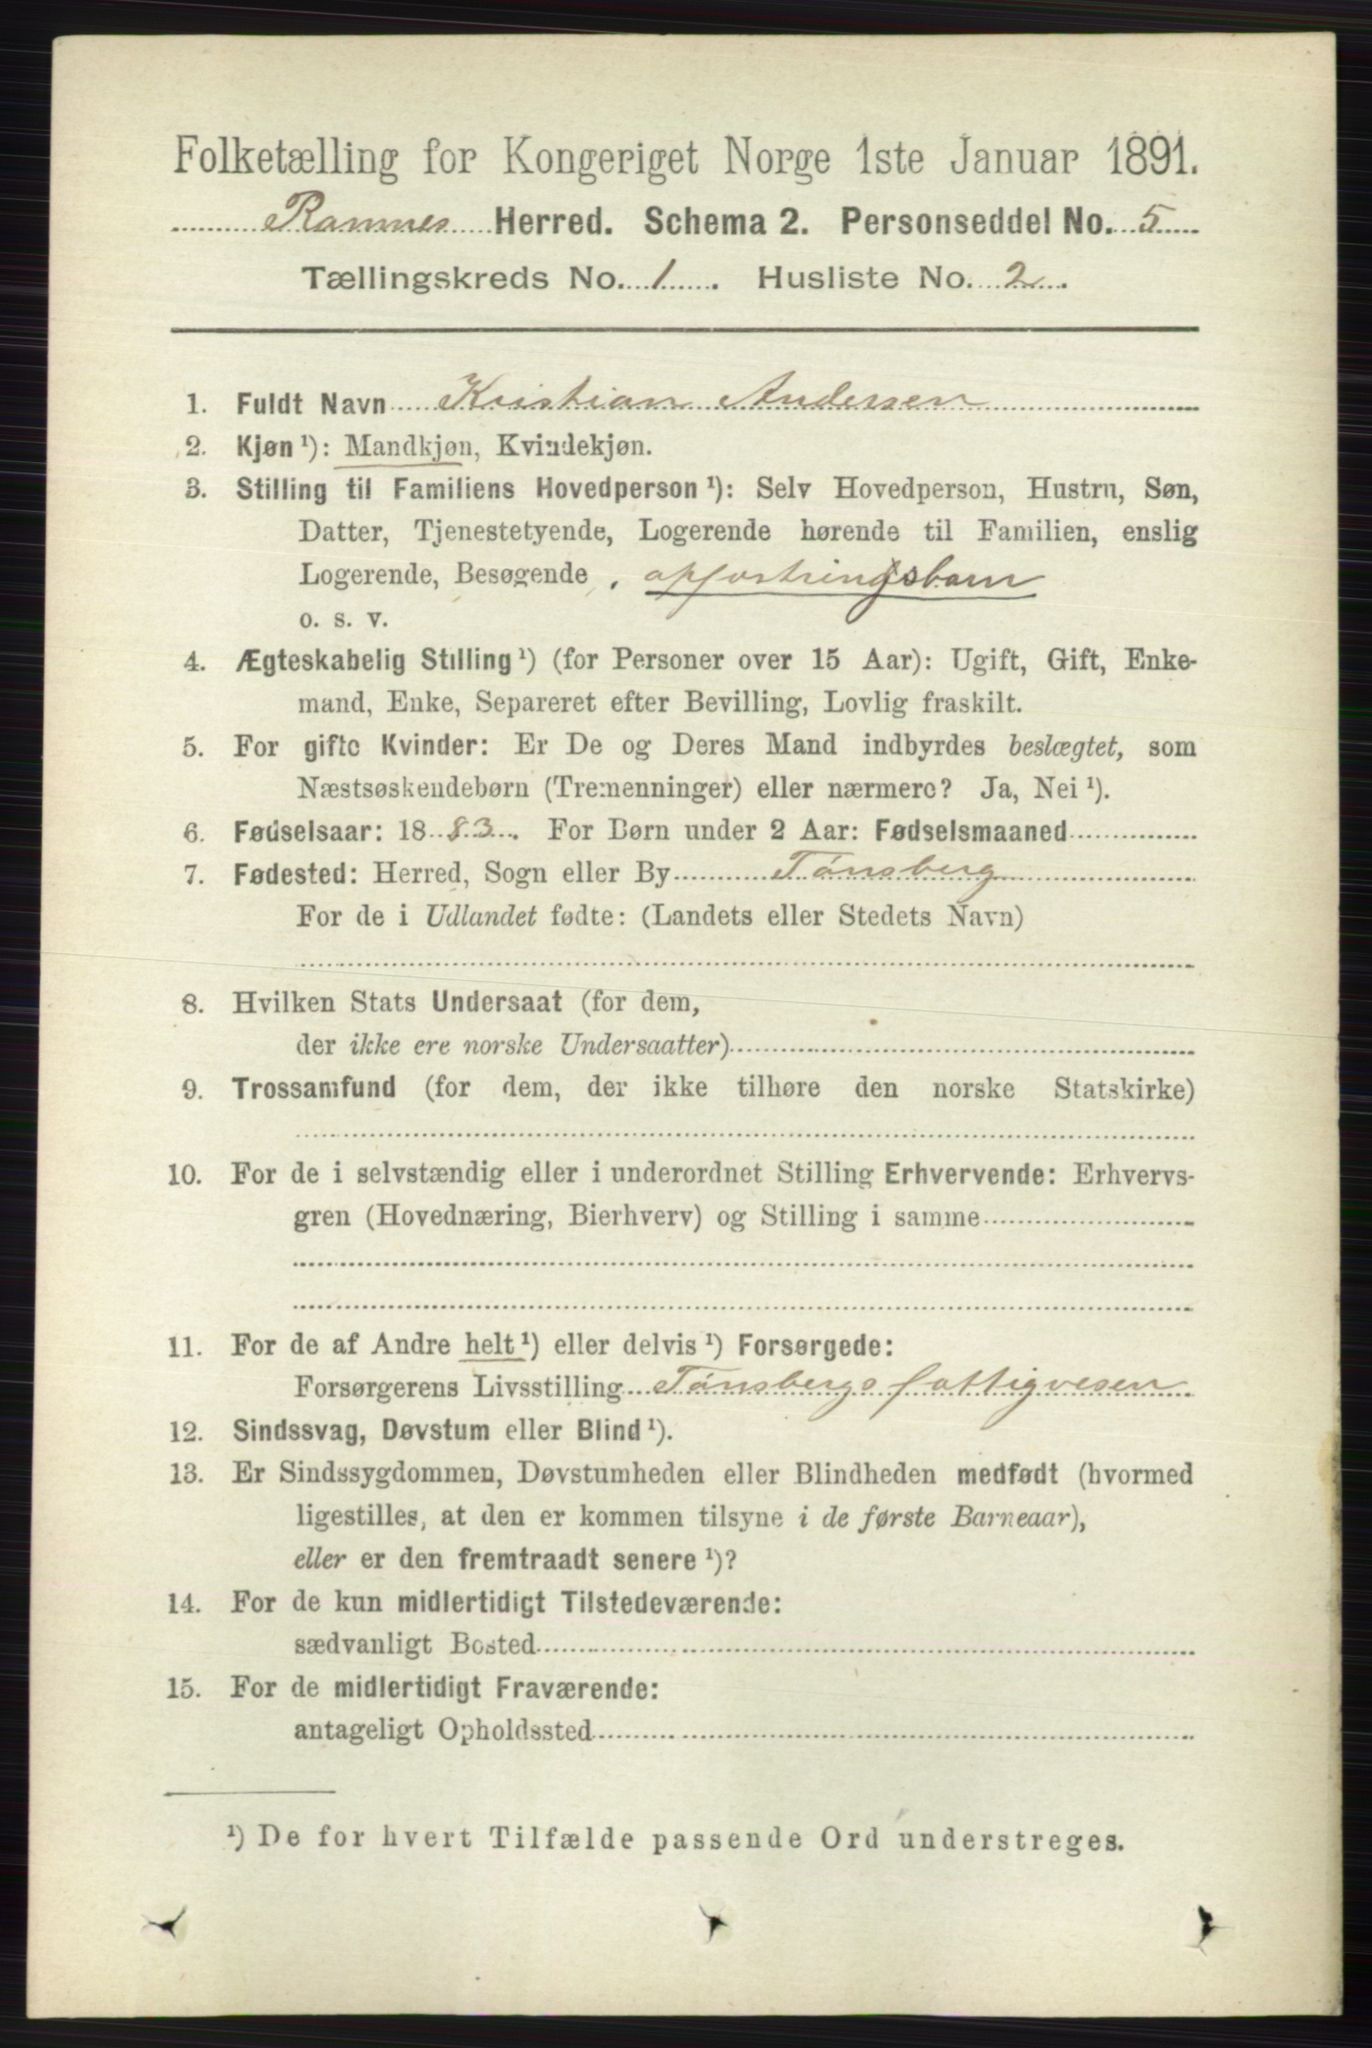 Folketælling for Kongeriget Norge 1ste Januar 1891.
Ramnes Herred. Schema 2. Personseddel No. 5
Tællingskreds No. 1. Husliste No. 2.
1. Fuldt Navn Kristian Andersen
2. Kjøn ¹): Mandkjøn, Kvindekjøn.
3. Stilling til Familiens Hovedperson ¹): Selv Hovedperson, Hustru, Søn,
Datter, Tjenestetyende, Logerende hørende til Familien, enslig
Logerende, Besøgende, opfostringsbarn
o. s. v.
4. Ægteskabelig Stilling ¹) (for Personer over 15 Aar): Ugift, Gift, Enke-
mand, Enke, Separeret efter Bevilling, Lovlig fraskilt.
5. For gifte Kvinder: Er De og Deres Mand indbyrdes beslægtet, som
Næstsøskendebørn (Tremenninger) eller nærmere? Ja, Nei ¹).
6. Fødselsaar: 1883. For Børn under 2 Aar: Fødselsmaaned
7. Fødested: Herred, Sogn eller By Tønsberg
For de i Udlandet fødte: (Landets eller Stedets Navn)
8. Hvilken Stats Undersaat (for dem,
der ikke ere norske Undersaatter)
9. Trossamfund (for dem, der ikke tilhøre den norske Statskirke)
10. For de i selvstændig eller i underordnet Stilling Erhvervende: Erhvervs-
gren (Hovednæring, Bierhverv) og Stilling i samme
11. For de af Andre helt ¹) eller delvis ¹) Forsørgede:
Forsørgerens Livsstilling Tønsbergs fattigvesen
12. Sindssvag, Døvstum eller Blind ¹).
13. Er Sindssygdommen, Døvstumheden eller Blindheden medfødt (hvormed
ligestilles, at den er kommen tilsyne i de første Barneaar),
eller er den fremtraadt senere ¹)?
14. For de kun midlertidigt Tilstedeværende:
sædvanligt Bosted
15. For de midlertidigt Fraværende:
antageligt Opholdssted
¹) De for hvert Tilfælde passende Ord understreges.